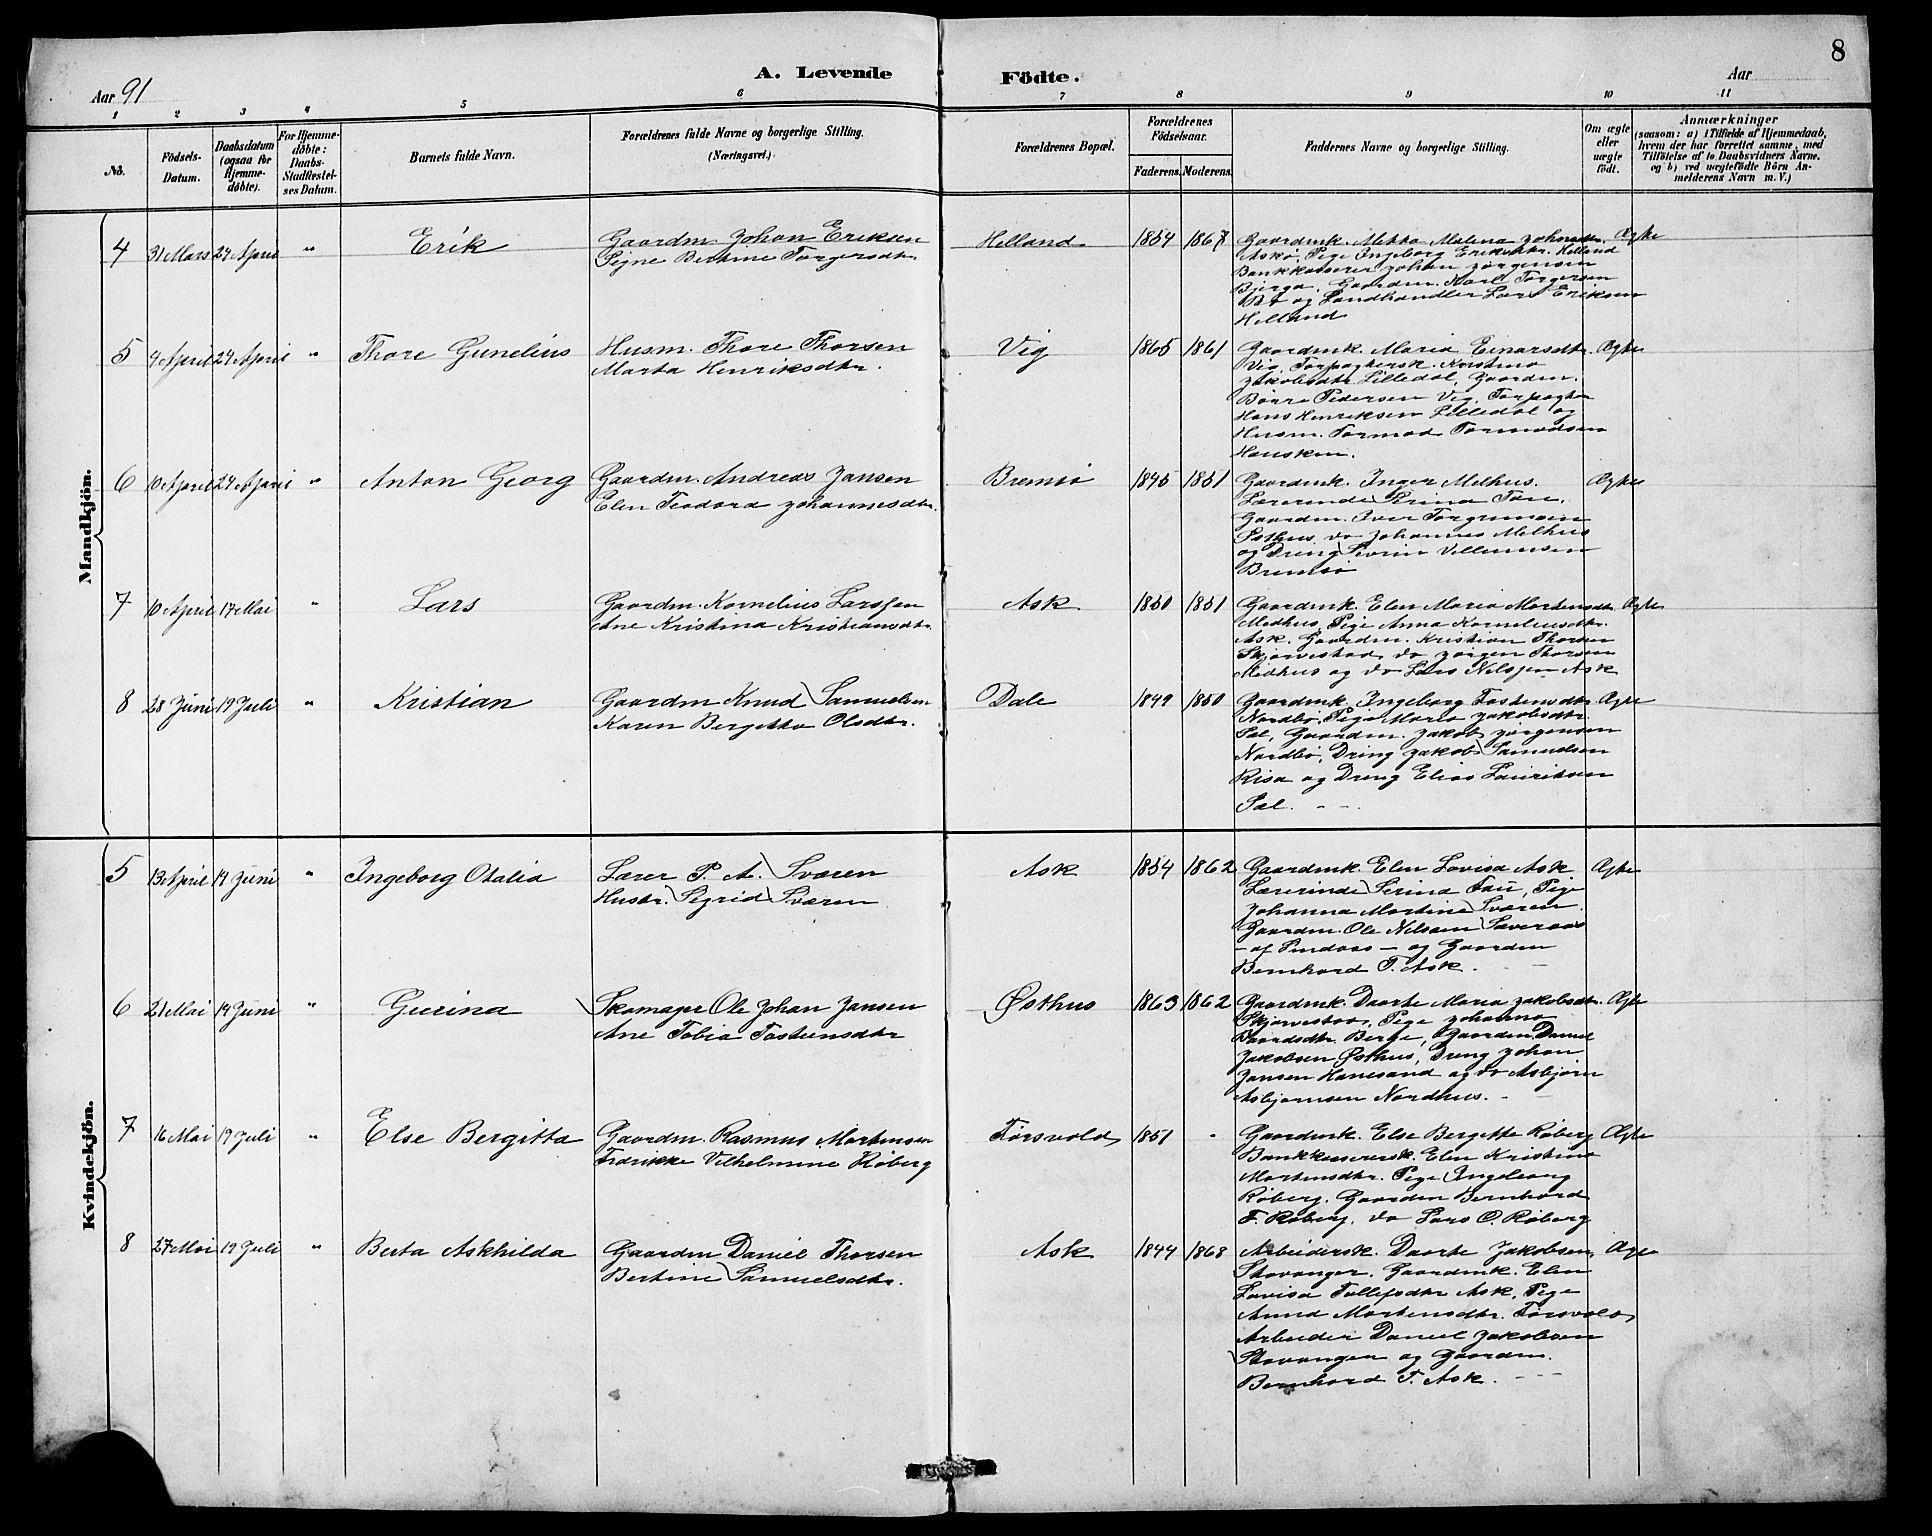 8
A. Levende Födte.
Aar 91
Aar
1 2 3 4 5 6 7 8 9 10 11
No.
Födsels-Datum.
Daabsdatum (ogsaa för Hjemmedöbte).
For Hjemmedöbte: Daabs-Stadfæstelses Datum.
Barnets fulde Navn.
Forældrenes fulde Navne og borgerlige Stilling.
(Næringsvei.)
Forældrenes Bopæl.
Forældrenes Födselsaar.
Faderens. Moderens.
Faddernes Navne og borgerlige Stilling.
Om ægte eller uægte födt.
Anmærkninger
(saasom: a) i Tilfælde af Hjemmedaab, hvem der har forrettet samme, med Tilföielse af to Daabsvidners Navne, og b) ved uægtefödte Börn Anmelderens Navn m. V.)
Mandkjön.
4 31 Mars 24 April " Erik
Gaardm. Johan Eriksen
Signe Bertine Torgersdtr.
Helland 1854 1867
Gaardmk. Mette Malena Johnsdtr.
Askø, Pige Ingeborg Eriksdtr. Helland
Bankkasserer Johan Jørgensen
Bjerga, Gaardm. Karl Torgersen
Bø og Landhandler Lars Eriksen
Helland
Ægte
5 4 April 24 April " Thore Gunelius
Husm. Thore Thorsen
Marta Henriksdtr.
Vig 1865 1861
Gaardmk. Maria Einarsdtr.
Vig, Forpagtersk. Kristine
Jakobsdtr. Lilledal, Gaardm.
Børre Pedersen Vig, Forpagter
Hans Henriksen Lilledal og
Husm. Tormod Tormodsen
Hausken.
Ægte
6 10 April 24 April " Anton Georg
Gaardm. Andreas Jansen
Elen Teodora Johannesdtr.
Bremsø 1845 1851
Gaardmk. Inger Melhus.
Lærerinde Serina Fau.
Gaardm. Iver Torgrimsen
Østhus, do Johannes Melhus
og Dreng Sevrin Villumsen
Bremsø
Ægte
7 10 April 17 Mai " Lars
Gaardm. Kornelius Larssen
Ane Kristina Kristiansdtr.
Ask 1850 1851
Gaardmk. Elen Maria Mortensdtr.
Medhus, Pige Anna Korneliusdtr.
Ask. Gaardm. Kristian Thorsen
Skjørvestad, do Jørgen Thorsen
Medhus og do Lars Nilssen Ask
Ægte
8 28 Juni 19 Juli " Kristian
Gaardm Knud Samuelsen
Karen Bergitta Olsdtr.
Dale 1849 1850
Gaardmk. Ingeborg Tostensdtr.
Nordbø, Pige Maria Jakobsdtr.
Sæl, Gaardm. Jakob Jørgensen
Nordbø, Dreng Jakob Samuelsen
Risa og Dreng Elias Lauritsen
Sæl.
Ægte
Kvindekjön.
5 13 April 14 Juni " Ingeborg Otalia
Lærer P. A. Sværen
Hustr. Sigrid Sværen
Ask 1854 1862
Gaardmk. Elen Lovisa Ask
Lærerinde Serina Fau, Pige
Johanna Martine Sværen.
Gaardm. Ole Nilsen Saveraas
- af Lindaas - og Gaardm
Bernhard T. Ask.
Ægte
6 21 Mai 14 Juni " Gurina
Skomager Ole Johan Jansen
Ane Tobia Tosteinsdtr
Østhus 1863 1862
Gaardmk. Daarte Maria Jakobsdtr.
Skjørvestad, Pige Johanna
Baardsdtr. Berge, Gaardm Daniel
Jakobsen Østhus, Dreng Johan
Jansen Hanesand og do Asbjørn
Asbjørnsen Nordhus.
Ægte
7 16 Mai 19 Juli " Else Bergitta
Gaardm. Rasmus Mortensen
Fredrikke Vilhelmine Røberg
Førsvold 1851 -
Gaardmk. Else Bergitte Røberg
Bankkasserersk. Elen Kristine
Mortensdtr. Pige Ingeborg
Røberg. Gaardm Bernhard
F. Røberg, do Lars O. Røberg
Ægte
8 27 Mai 19 Juli " Berta Askhilda
Gaardm Daniel Thorsen
Bertine Samuelsdtr.
Ask 1844 1868
Arbeidersk. Daarte Jakobsen,
Stavanger. Gaardmk. Elen
Lovisa Tollefsdtr Ask, Pige
Anna Mortensdtr. Førsvold,
Arbeider Daniel Jakobsen
Stavanger og Gaardm.
Bernhard T. Ask.
Ægte